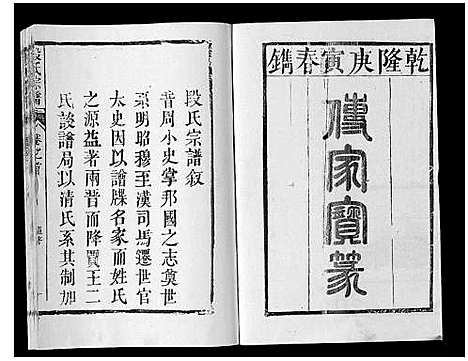 乾隆庚寅春鐫
傳家寶篆
段氏宗譜敘
昔周小史掌邦國之志奠世
系明昭穆至漢司馬遷世官
太史因以譜牒名家而姓氏
之源益著兩晉而降賈王二
氏談譜局以清氏系其制加
段氏宗譜
卷之首